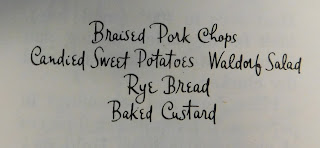 Braised Pork Chops
Candied Sweet Potatoes Waldorf Salad
Rye Bread
Baked Custard